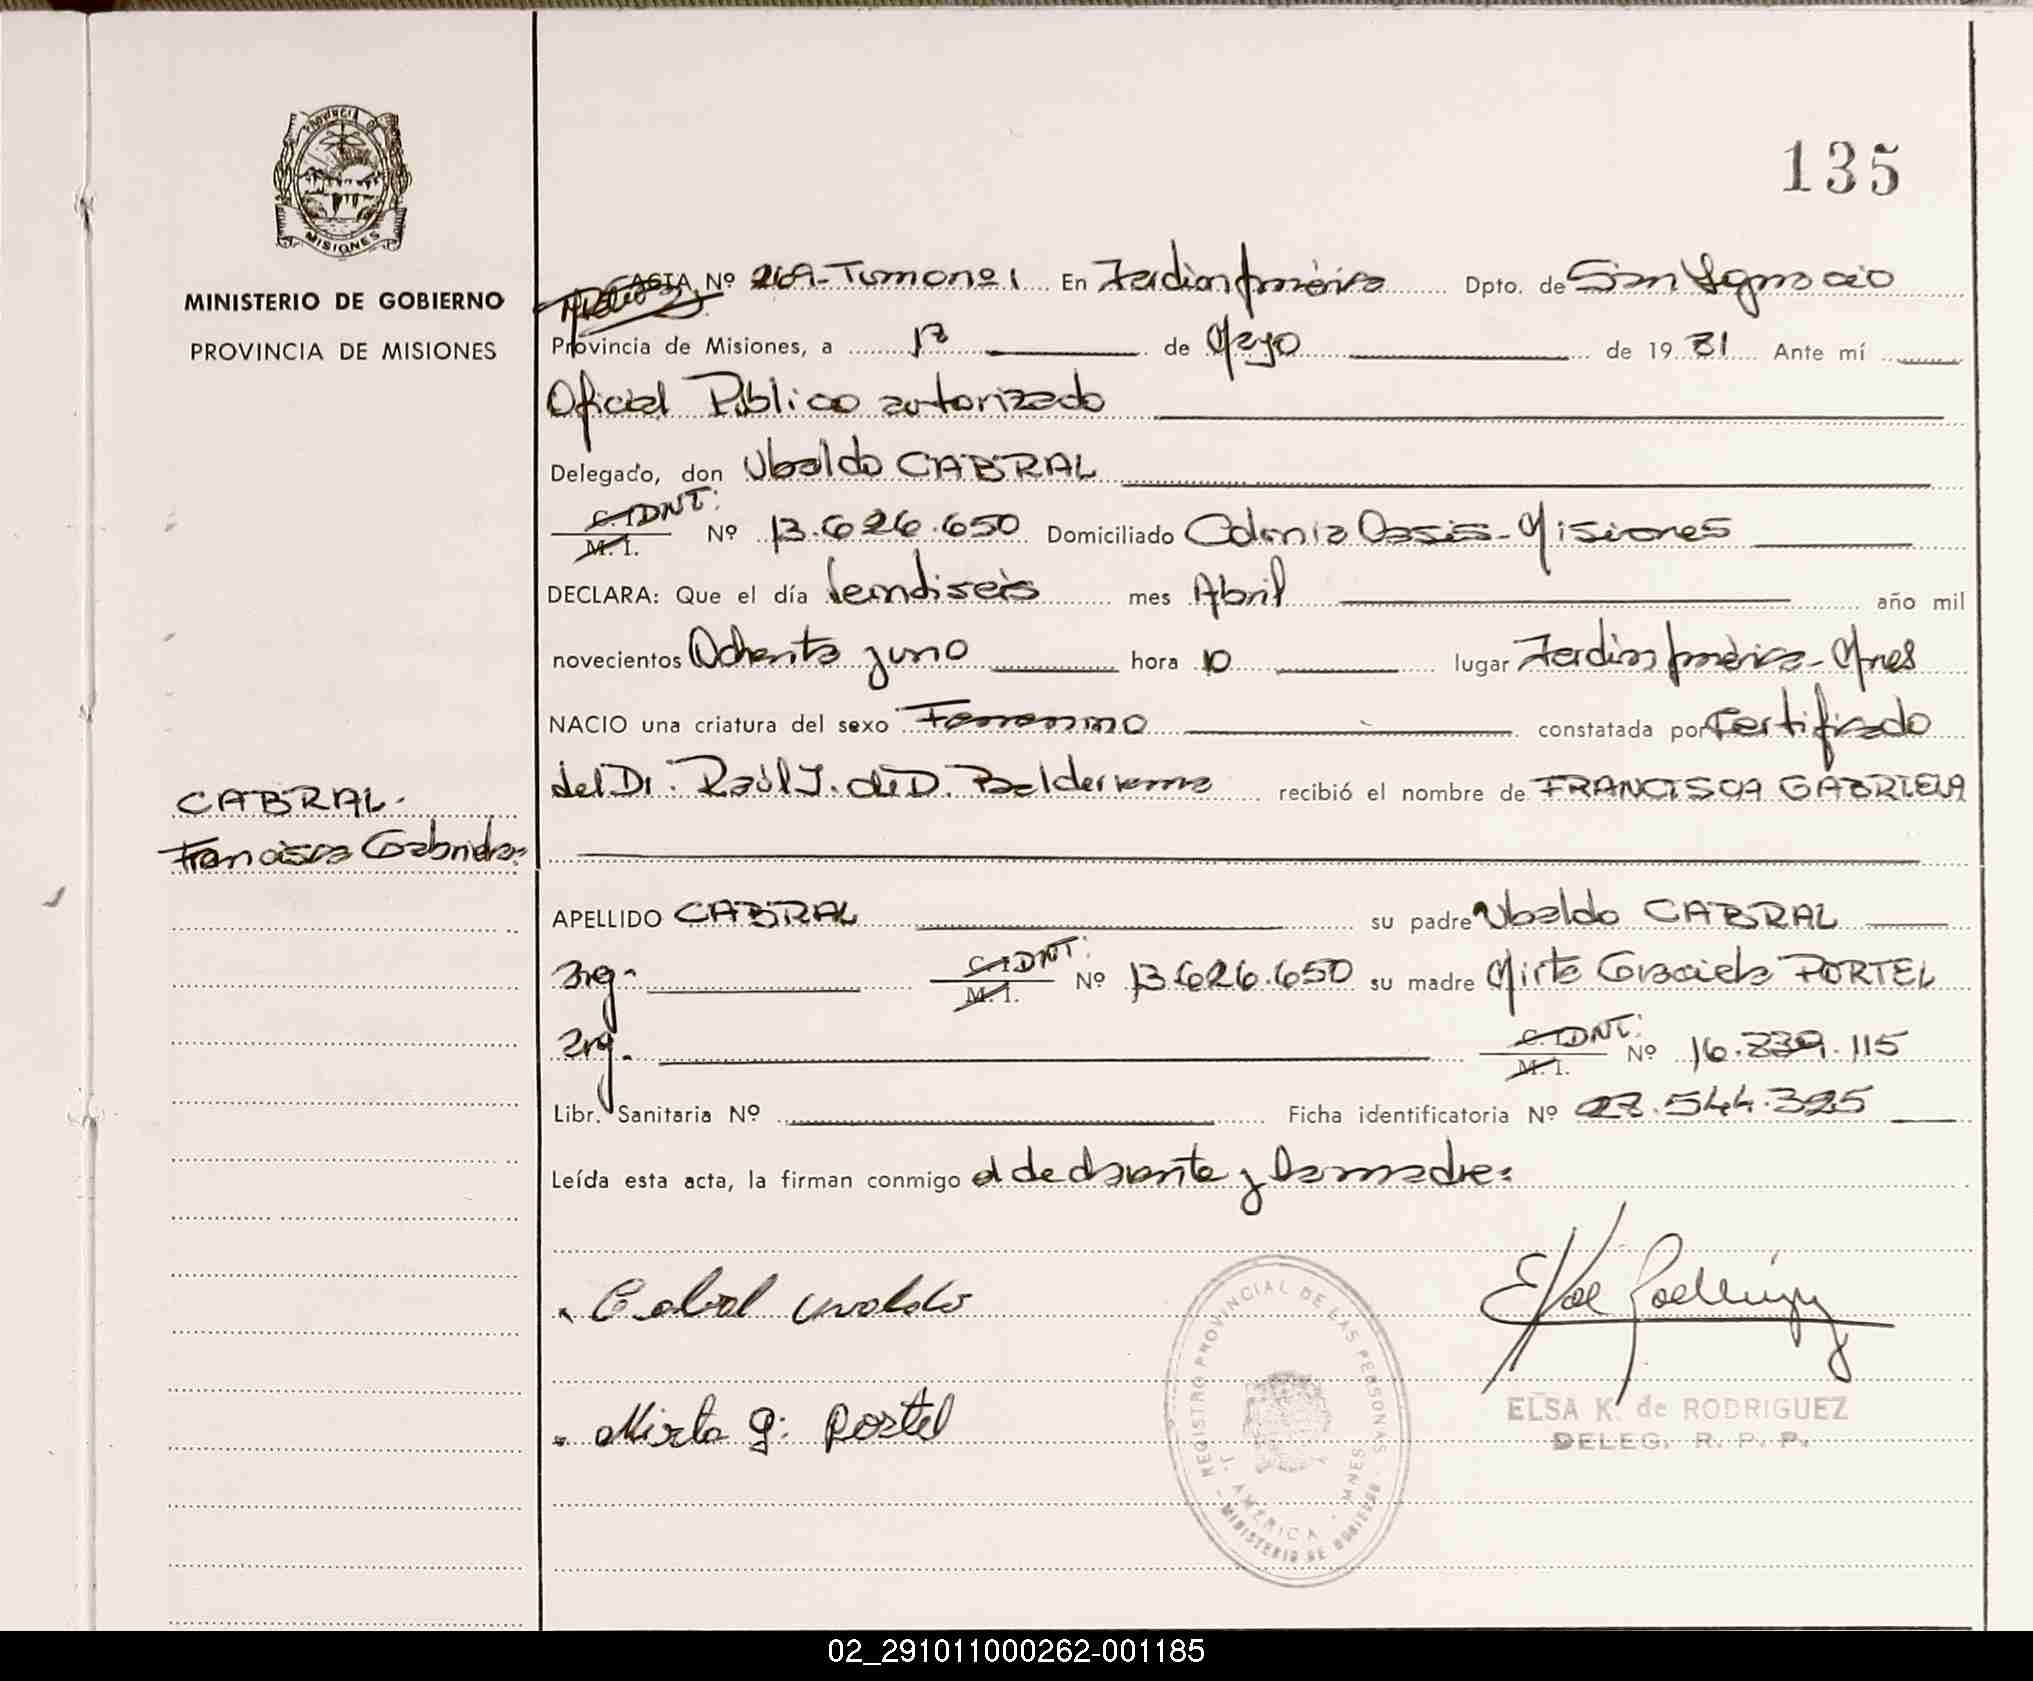 PROVINCIA DE
MISIONES
MINISTERIO DE GOBIERNO
PROVINCIA DE MISIONES
135
ACTA Nº 269-Tomo nº 1 En Jardin América Dpto. de San Ignacio
Provincia de Misiones, a de Mayo de 19 81 Ante mí
Oficial Público autorizado
Delegado, don Ubaldo CABRAL
C. I DNT:
M. I. Nº 13.626.650 Domiciliado Colonia Oasis-Misiones
DECLARA: Que el día mes Abril año mil
novecientos Ochenta y uno hora 10 lugar Jardin América-Mnes
NACIO una criatura del sexo Femenino constatada por Certificado
del Dr. Raúl J. de D. Balderrama recibió el nombre de FRANCISCA GABRIELA
CABRAL.
Francisca Gabriela=
APELLIDO CABRAL su padre Ubaldo CABRAL
Arg- C. I DNT: M. I. Nº 13.626.650 su madre Mirta Graciela PORTEL
Arg. C. I DNT: M. I. Nº 16.839.115
Libr. Sanitaria Nº Ficha identificatoria Nº 28.544.325
Leída esta acta, la firman conmigo el declarante y la madre=
Cabral uvaldo
Elsa Rodríguez
Mirta g: Portel
REGISTRO PROVINCIAL DE LAS PERSONAS
J. AMERICA - MNES
MINISTERIO DE GOBIERNO
ELSA K. de RODRIGUEZ
DELEG. R. P. P.
02_291011000262-001185